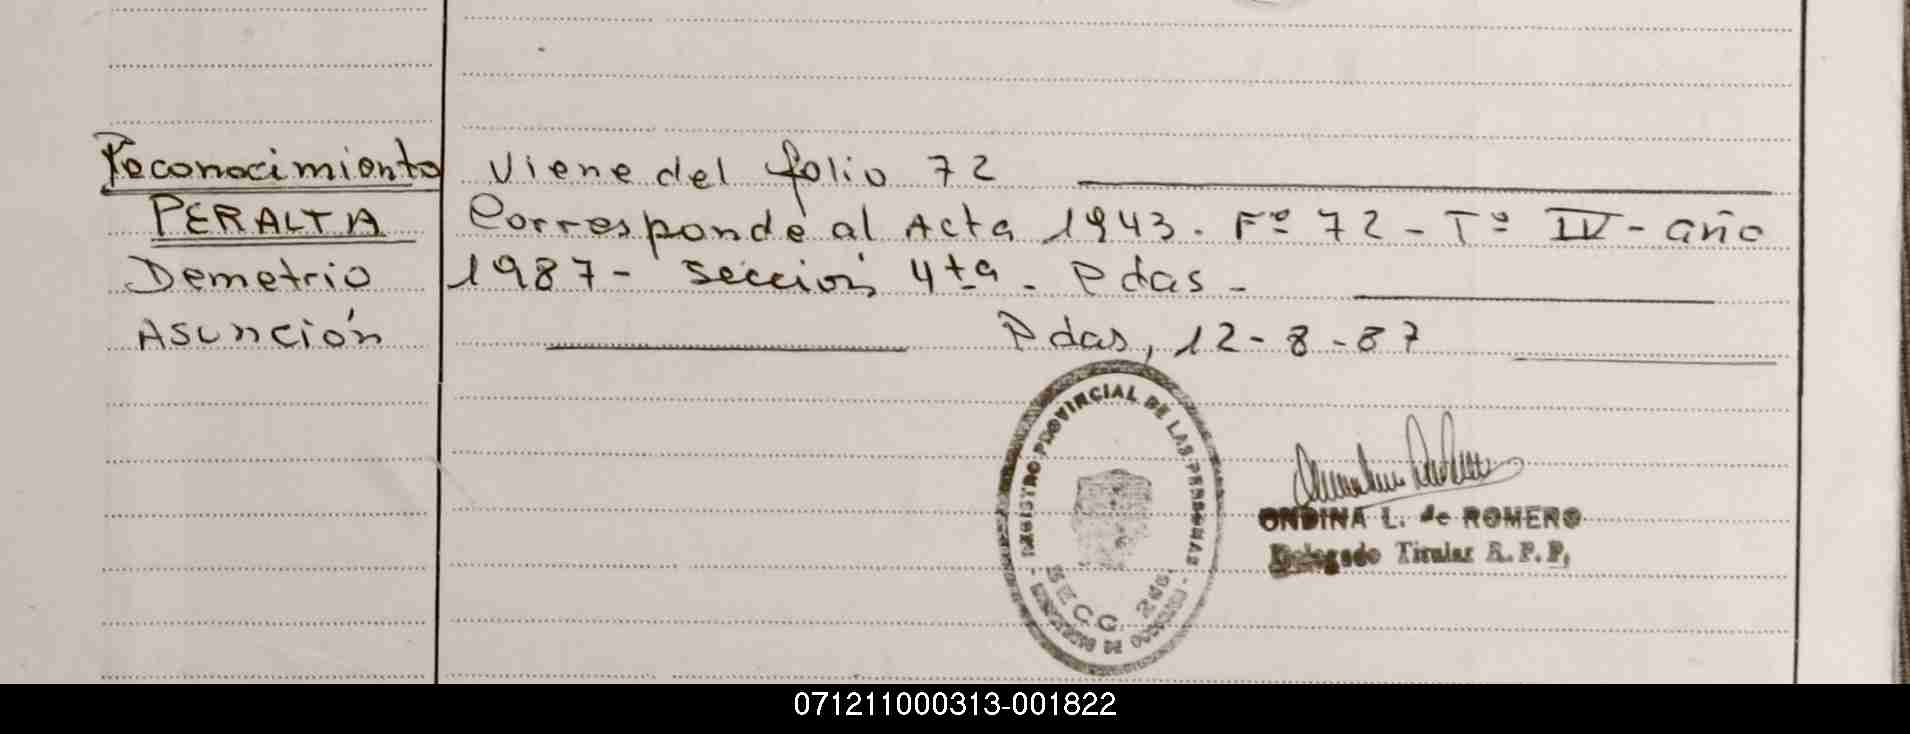 Reconocimiento
PERALTA
Demetrio
Asunción
Viene del folio 72
Corresponde al Acta 1943. Fº 72 - Tº IV - año
1987 - Sección 4ta. Pdas -
Pdas, 12-8-87
REGISTRO PROVINCIAL DE LAS PERSONAS
SECC.
ONDINA L. de ROMERO
Delegado Titular R.P.P.
071211000313-001822